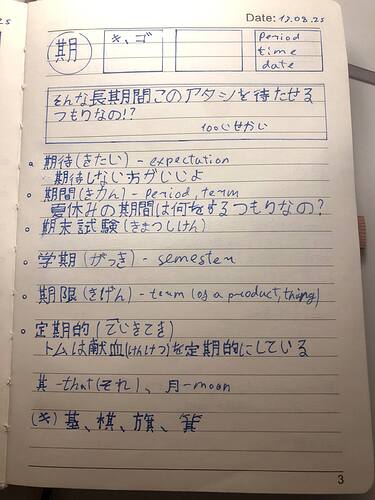 Date: 17.08.25
期 キ、ゴ period
time
date
そんな長期間このアタシを待たせる
つもりなの!?
100じせかい
期待(きたい) - expectation
期待しない方がいいよ
期間(きかん) - Period, term
夏休みの期間は何をするつもりなの?
期末試験(きまつしけん)
学期(がっき) - semester
期限(きげん) - term (of a product, thing)
定期的(ていきてき)
トムは献血(けんけつ)を定期的にしている
其 -that(それ)、月-moon
(キ) 基、棋、旗、箕
3